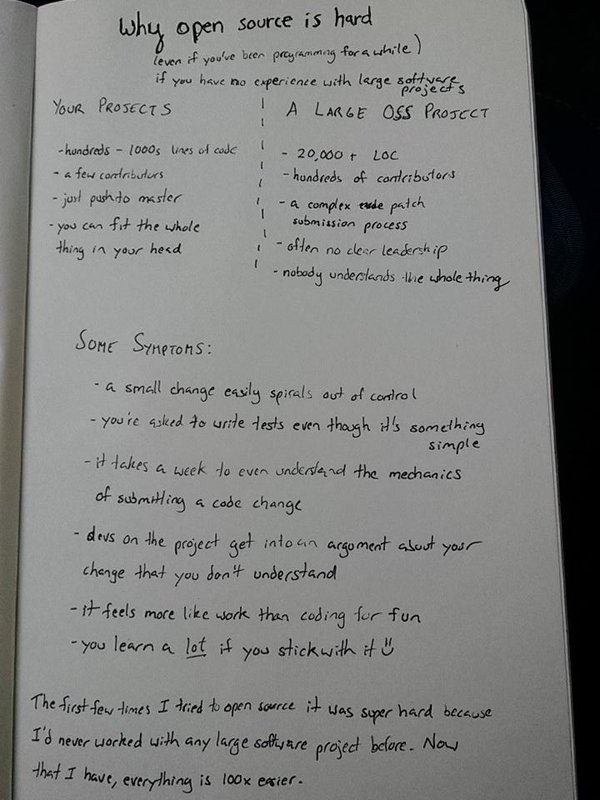 Why open source is hard
(even if you've been programming for a while)
if you have no experience with large software
projects
YOUR PROJECTS
- hundreds - 1000s lines of code
- a few contributors
- just push to master
- you can fit the whole
thing in your head
A LARGE OSS PROJECT
- 20,000 + LOC
- hundreds of contributors
- a complex patch
submission process
- often no clear leadership
- nobody understands the whole thing
SOME SYMPTOMS:
- a small change easily spirals out of control
- you're asked to write tests even though it's something
simple
- it takes a week to even understand the mechanics
of submitting a code change
- devs on the project get into an argument about your
change that you don't understand
- it feels more like work than coding for fun
- you learn a lot if you stick with it
The first few times I tried to open source it was super hard because
I'd never worked with any large software project before. Now
that I have, everything is 100x easier.